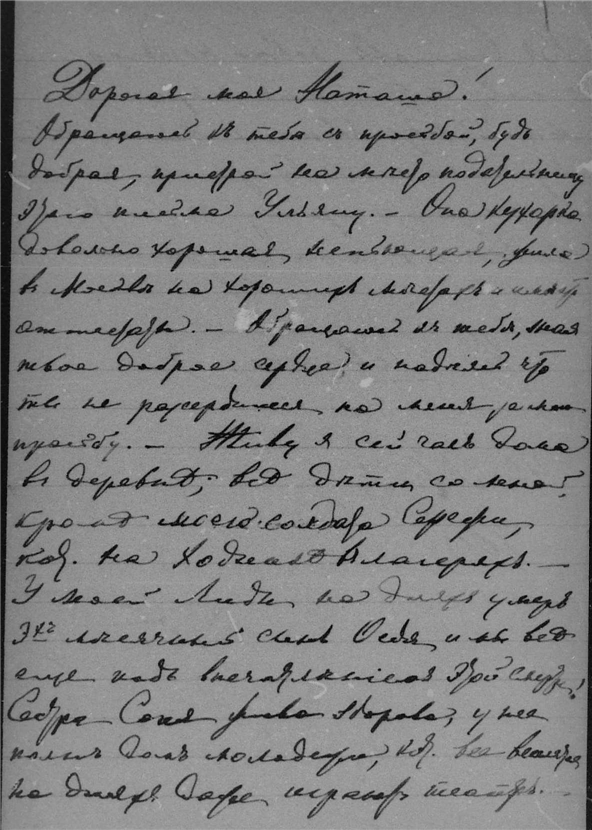 Дорогая моя Наташа!
Обращаюсь къ тебѣ съ просьбой, будь
добрая, пристрой на мѣсто подательницу
этого письма Ульяну. — Она кухарка
довольно хорошая, непьющая, жила
въ Москвѣ на хорошихъ мѣстахъ и имѣетъ
аттестаты. — Обращаюсь къ тебѣ, зная
твое доброе сердце, и надѣясь что
ты не разсердишься на меня за мою
просьбу. — Живу я сейчасъ дома
въ деревнѣ, всѣ дѣти со мной,
кромѣ моего солдата Сережи,
кот. на Ходынкѣ въ лагеряхъ. —
У моей Лиды на дняхъ умеръ
3хъ мѣсячный сынъ Федя, и мы всѣ
еще подъ впечатлѣніемъ этой смерти!
Сестра Соня жива здорова, у нее
полнъ домъ молодежи, кот. все веселятся
на дняхъ даже играютъ театръ. —